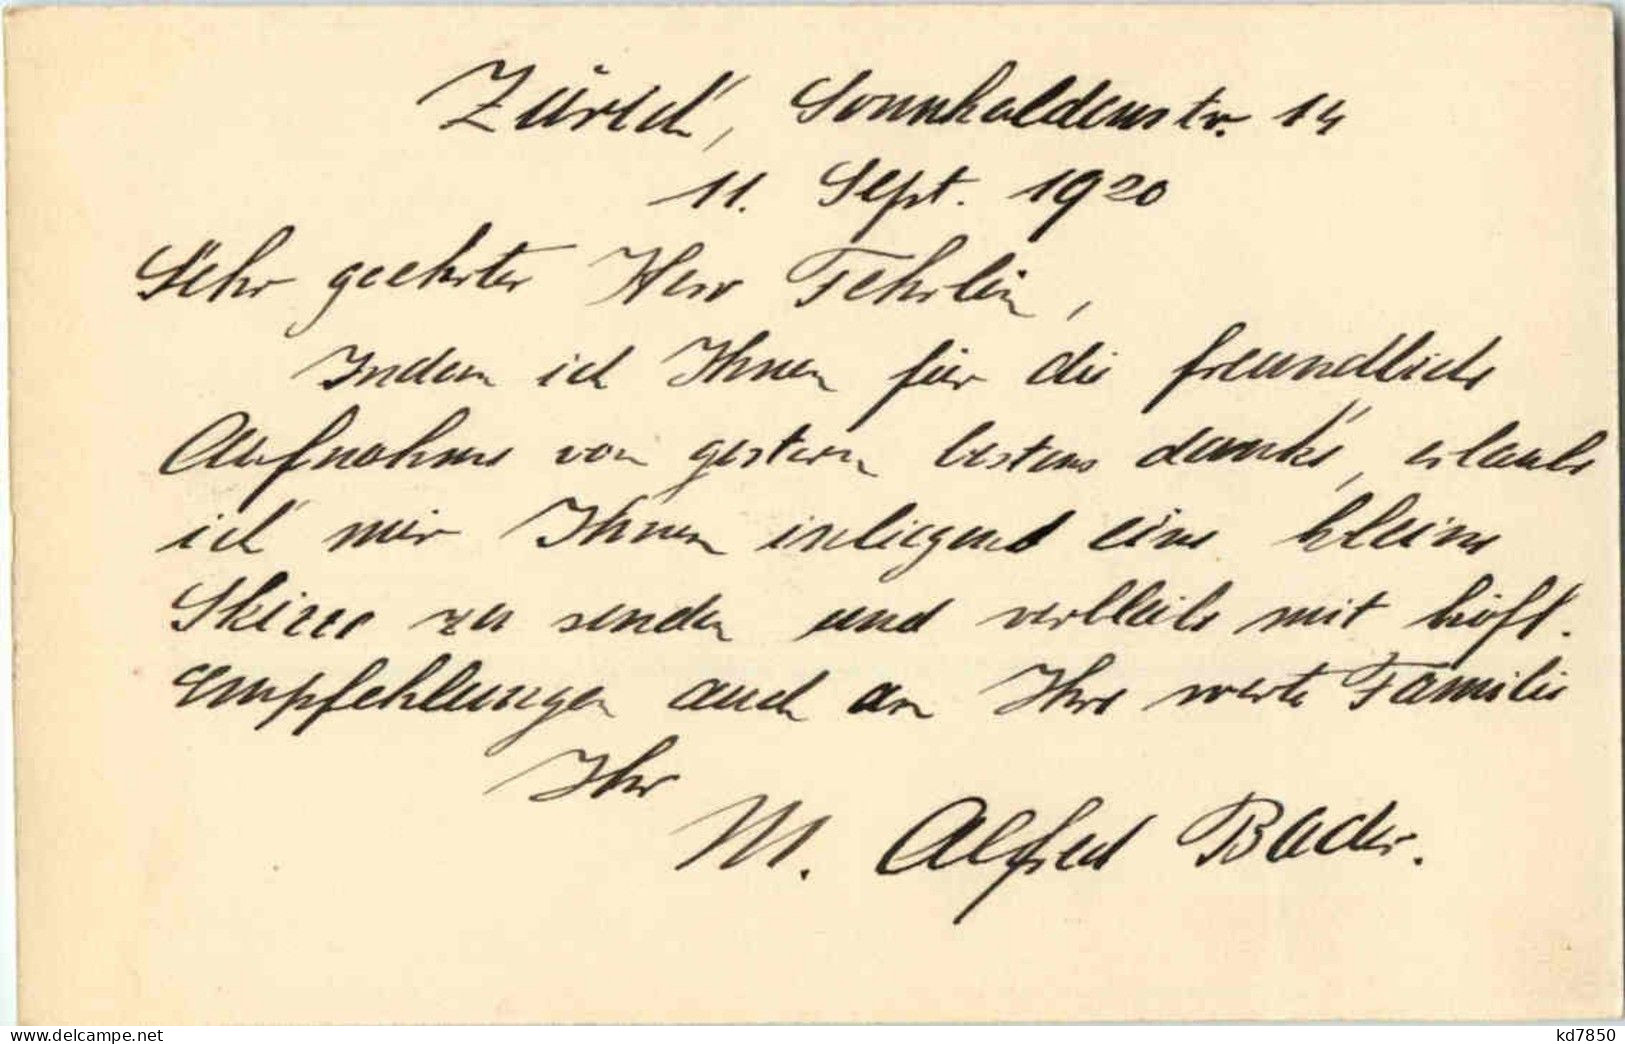 Zürich, Sonnhaldenstr. 14
11. Sept. 1920
Sehr geehrter Herr Fehrlin,
Indem ich Ihnen für die freundliche
Aufnahme von gestern bestens danke, erlaube
ich mir Ihnen inliegend eine kleine
Skizze zu senden und verbleibe mit höfl.
Empfehlungen auch an Ihre werte Familie
Ihr
M. Alfred Bader.
kd7850